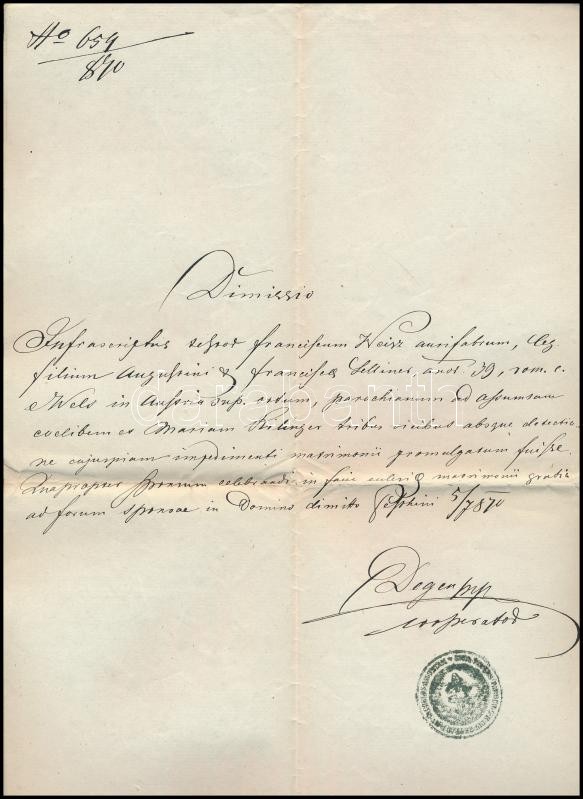 No 659
870
Dimissio
Infrascriptus testor Franciscum Weisz aurifabrum, leg.
filium Augustini & Franciscae annor 39, rom. c.
Wels in Austria sup. ortum, parochianum ad assumtam
coelibem et Mariam Rilinger tribus vicibus absque detectio-
ne cujuspiam impedimenti matrimonii promulgatum fuisse.
Quapropter sponsum celebrandi in facie ecclesiae matrimonii gratia
ad forum sponsae in Domino dimitto Pesthini 5/7 870
cooperator
darabanth